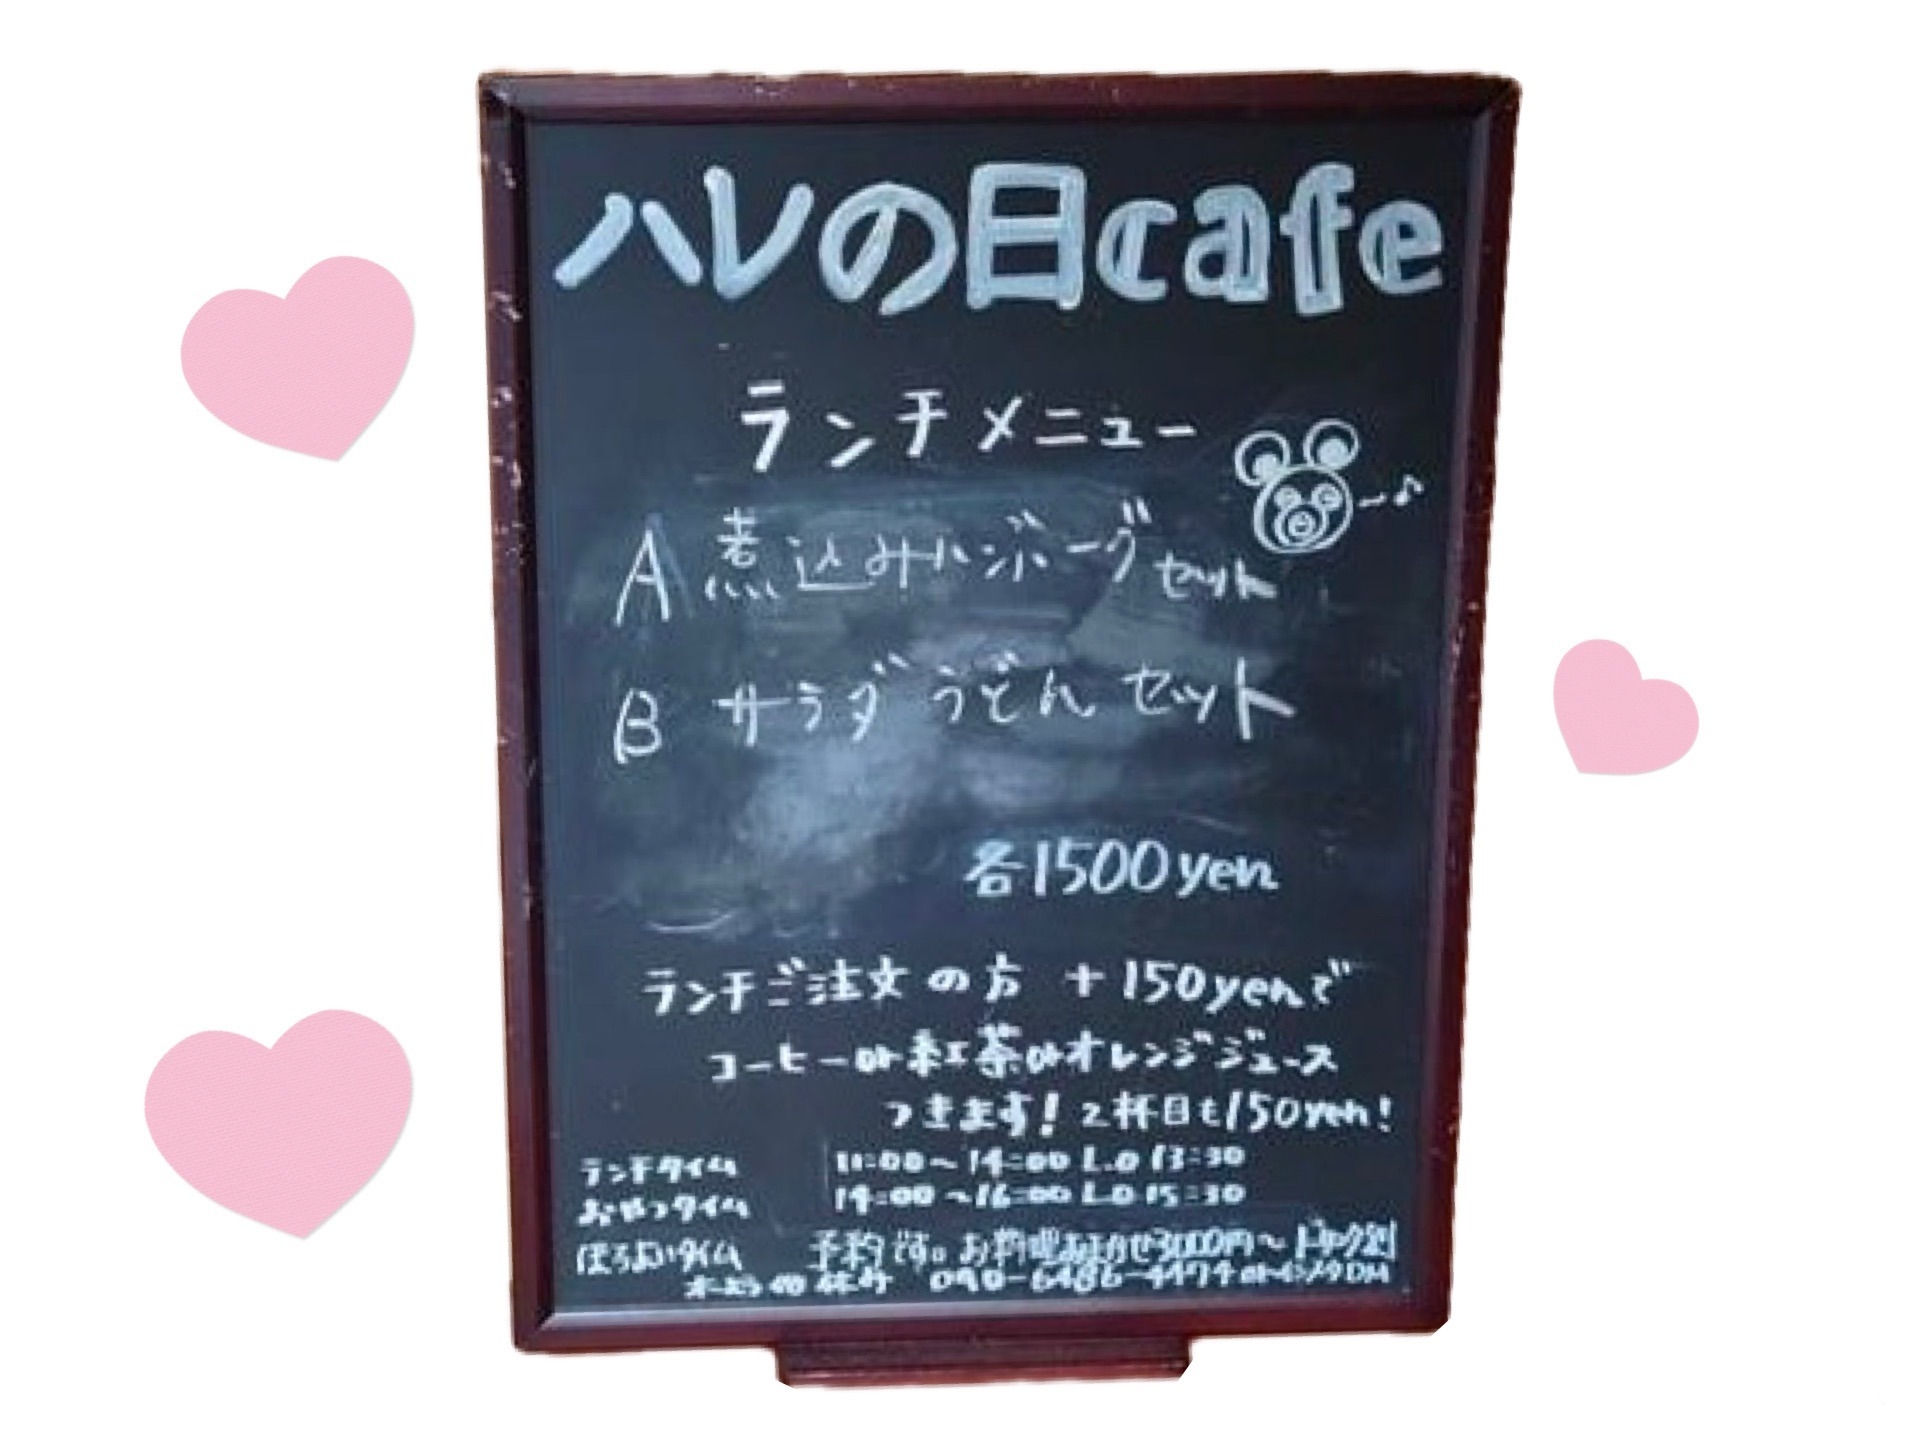 ハレの日cafe
ランチメニュー
A 煮込みハンバーグセット
B サラダうどんセット
各1500yen
ランチご注文の方 +150yenで
コーヒーor紅茶orオレンジジュース
つきます! 2杯目も150yen!
ランチタイム 11:00～14:00 L.O 13:30
おやつタイム 14:00～16:00 L.O 15:30
ほろよいタイム 予約です。お料理おまかせ3000円～ドリンク別
木よう日休み 090-6486-4474 orインスタDM